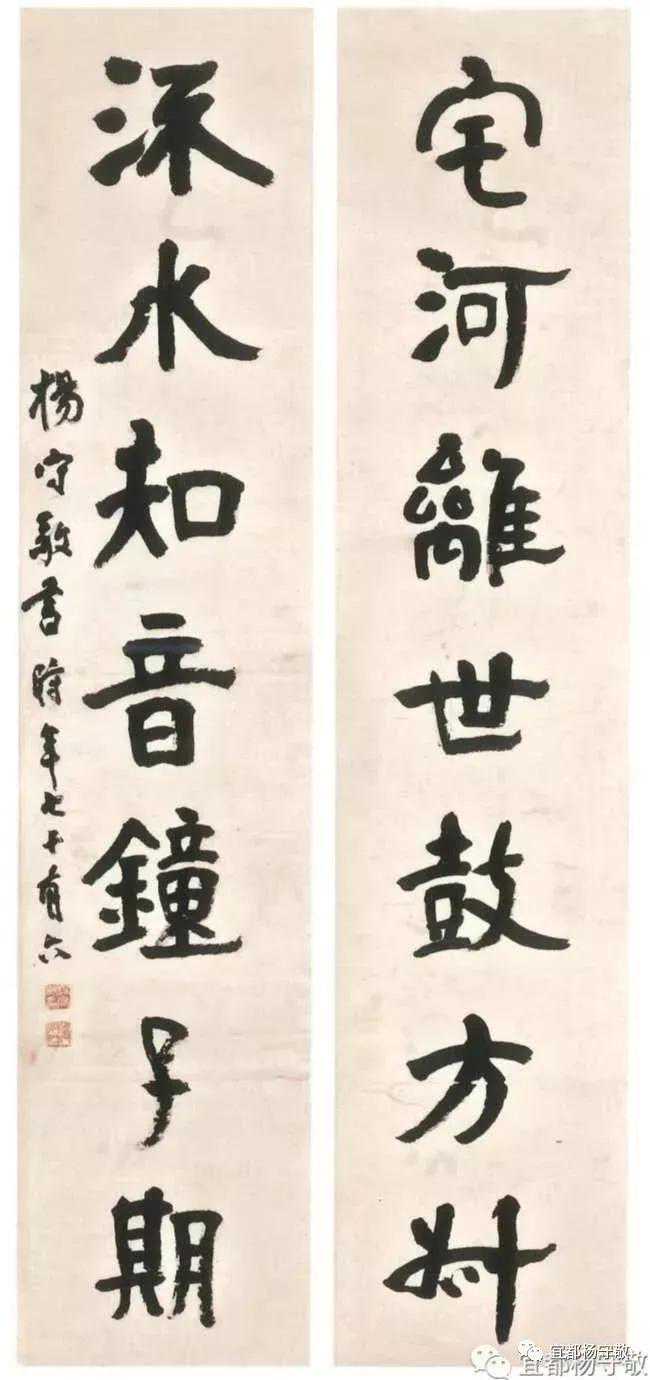 宅河離世鼓方叔
流水知音鐘子期
楊守敬書時年七十有六
宜都杨守敬
宜都杨守敬